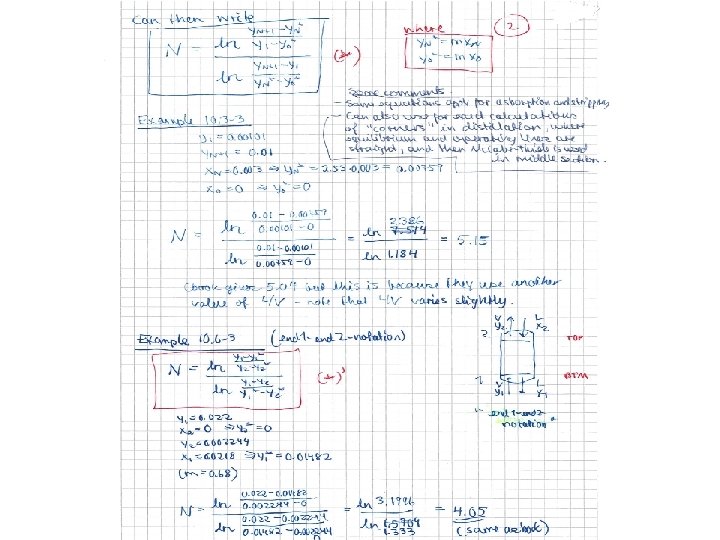 Can then write
where
2.
N = ln (yN+1 - yN*)/(y1 - y0*) / ln (yN+1 - y1)/(yN* - y0*)
(*)
yN* = m xN
y0* = m x0
Some comments.
- Same equations apply for absorption and stripping
- Can also use for exact calculations
of "corners" in distillation, where
equilibrium and operating lines are
straight, and then McCabe-Thiele is used
in middle section.
Example 10.3-3
y1 = 0.00101
yN+1 = 0.01
xN = 0.003 ⇒ yN* = 2.53·0.003 = 0.00759
x0 = 0 ⇒ y0* = 0
N = ln (0.01 - 0.00759)/(0.00101 - 0) / ln (0.01 - 0.00101)/(0.00759 - 0) = ln 2.386 / ln 1.184 = 5.15
(book gives 5.04 but this is because they use another
value of L/V - note that L/V varies slightly.
Example 10.6-3 (end 1- and 2-notation)
N = ln (y1 - y1*)/(y2 - y2*) / ln (y1 - y2)/(y1* - y2*)
(*)'
V L
y2 x2
2.
TOP
1.
BTM
V L
y1 x1
"end 1-end 2
notation"
y1 = 0.022
x2 = 0 ⇒ y2* = 0
y2 = 0.002244
x1 = 0.0218 ⇒ y1* = 0.01482
(m = 0.68)
N = ln (0.022 - 0.01482)/(0.002244 - 0) / ln (0.022 - 0.002244)/(0.01482 - 0) = ln 3.1996 / ln 1.333 = 4.05
(same as book)